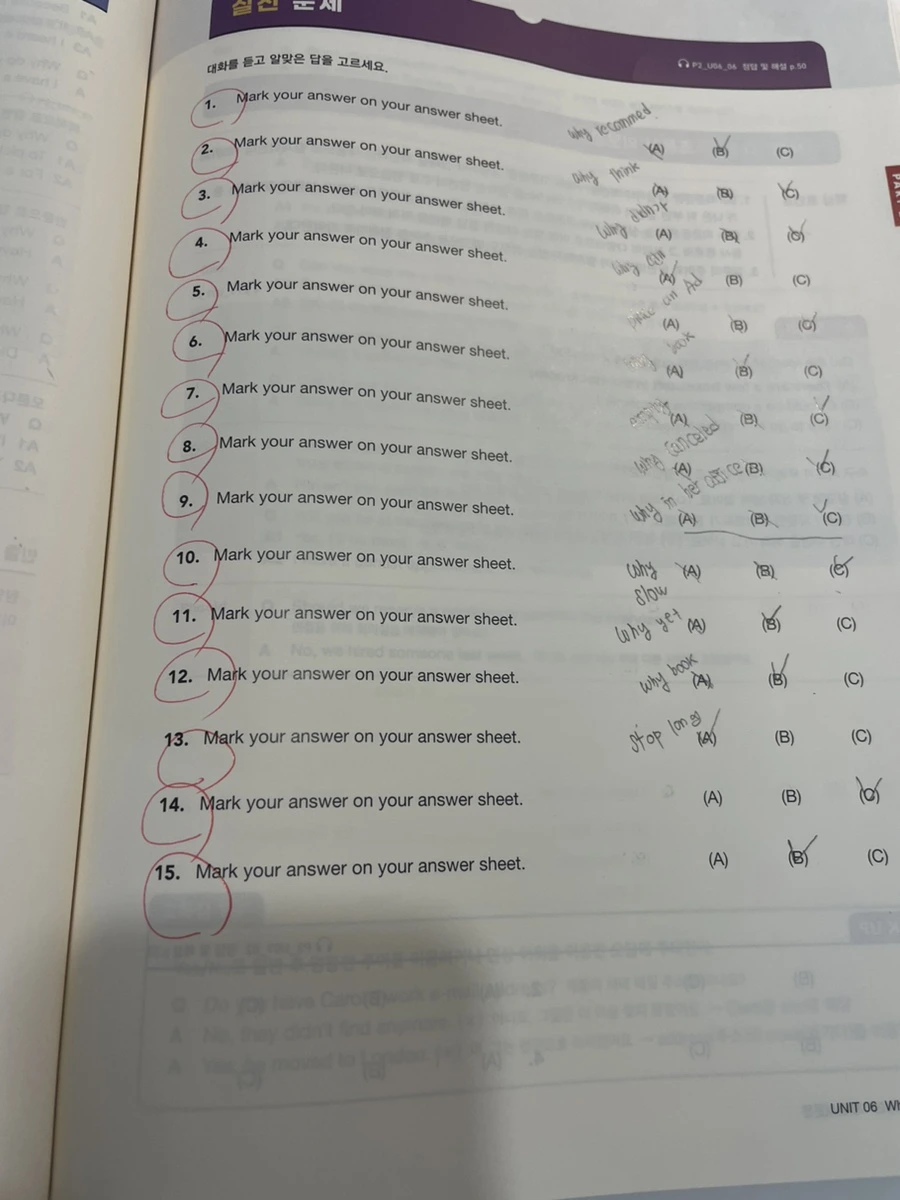 실전 문제
P2_U06_06 정답 및 해설 p.50
대화를 듣고 알맞은 답을 고르세요.
1. Mark your answer on your answer sheet. (A) (B) (C)
why recommed
2. Mark your answer on your answer sheet. (A) (B) (C)
why think
3. Mark your answer on your answer sheet. (A) (B) (C)
why didn't
4. Mark your answer on your answer sheet. (A) (B) (C)
why can
5. Mark your answer on your answer sheet. (A) (B) (C)
an Ad
6. Mark your answer on your answer sheet. (A) (B) (C)
book
7. Mark your answer on your answer sheet. (A) (B) (C)
8. Mark your answer on your answer sheet. (A) (B) (C)
why canceled
9. Mark your answer on your answer sheet. (A) (B) (C)
why in her office
10. Mark your answer on your answer sheet. (A) (B) (C)
why slow
11. Mark your answer on your answer sheet. (A) (B) (C)
why yet
12. Mark your answer on your answer sheet. (A) (B) (C)
why book
13. Mark your answer on your answer sheet. (A) (B) (C)
stop long
14. Mark your answer on your answer sheet. (A) (B) (C)
15. Mark your answer on your answer sheet. (A) (B) (C)
UNIT 06 Wh